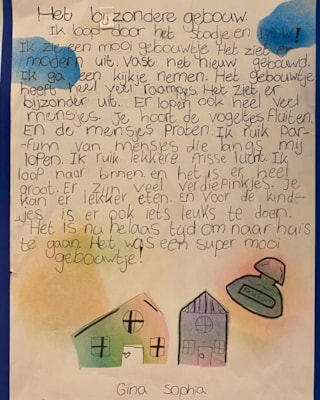 Het bijzondere gebouw.
Ik loop door het stadje en kijk!
Ik zie een mooi gebouwtje. Het ziet er
modern uit. Vast net nieuw gebouwd.
Ik ga een kijkje nemen. Het gebouwtje
heeft heel veel raampjes. Het ziet er
bijzonder uit. Er lopen ook heel veel
mensjes. Je hoort de vogeltjes fluiten.
En de mensjes praten. Ik ruik par-
fum van mensjes die langs mij
lopen. Ik ruik lekkere frisse lucht. Ik
loop naar binnen en het is er heel
groot. Er zijn veel verdiepinkjes. Je
kan er lekker eten. En voor de kindt-
jes is er ook iets leuks te doen.
Het is nu helaas tijd om naar huis
te gaan. Het was een super mooi
gebouwtje!
Gina Sophia